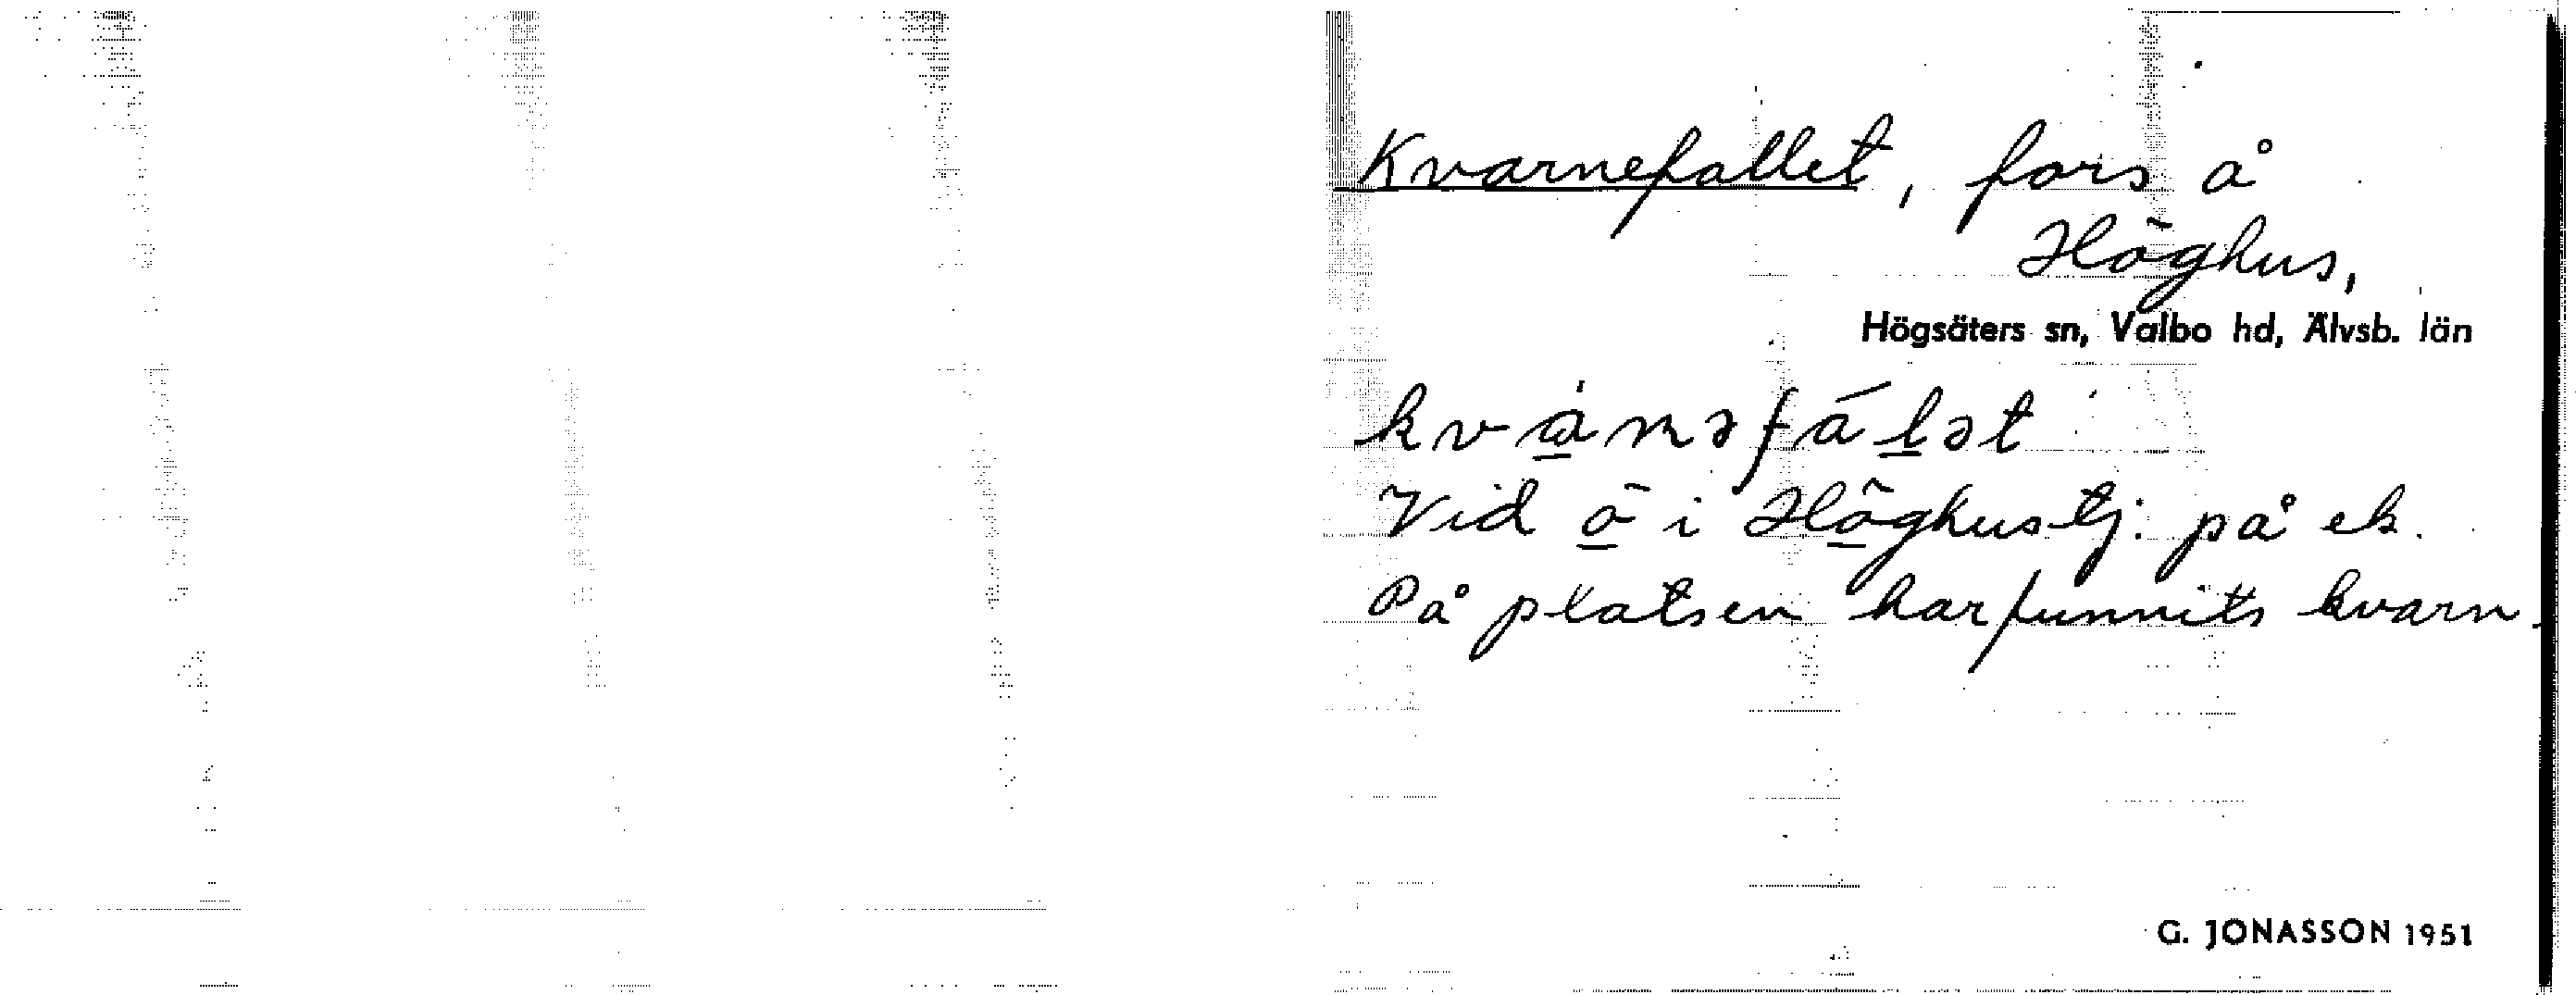 Kvarnefallet, fors å
Höghus,
Högsäters sn, Valbo hd, Älvsb. län
kvànəfálət
Vid ö i Höghustj. på ek.
På platsen har funnits kvarn.
G. JONASSON 1951